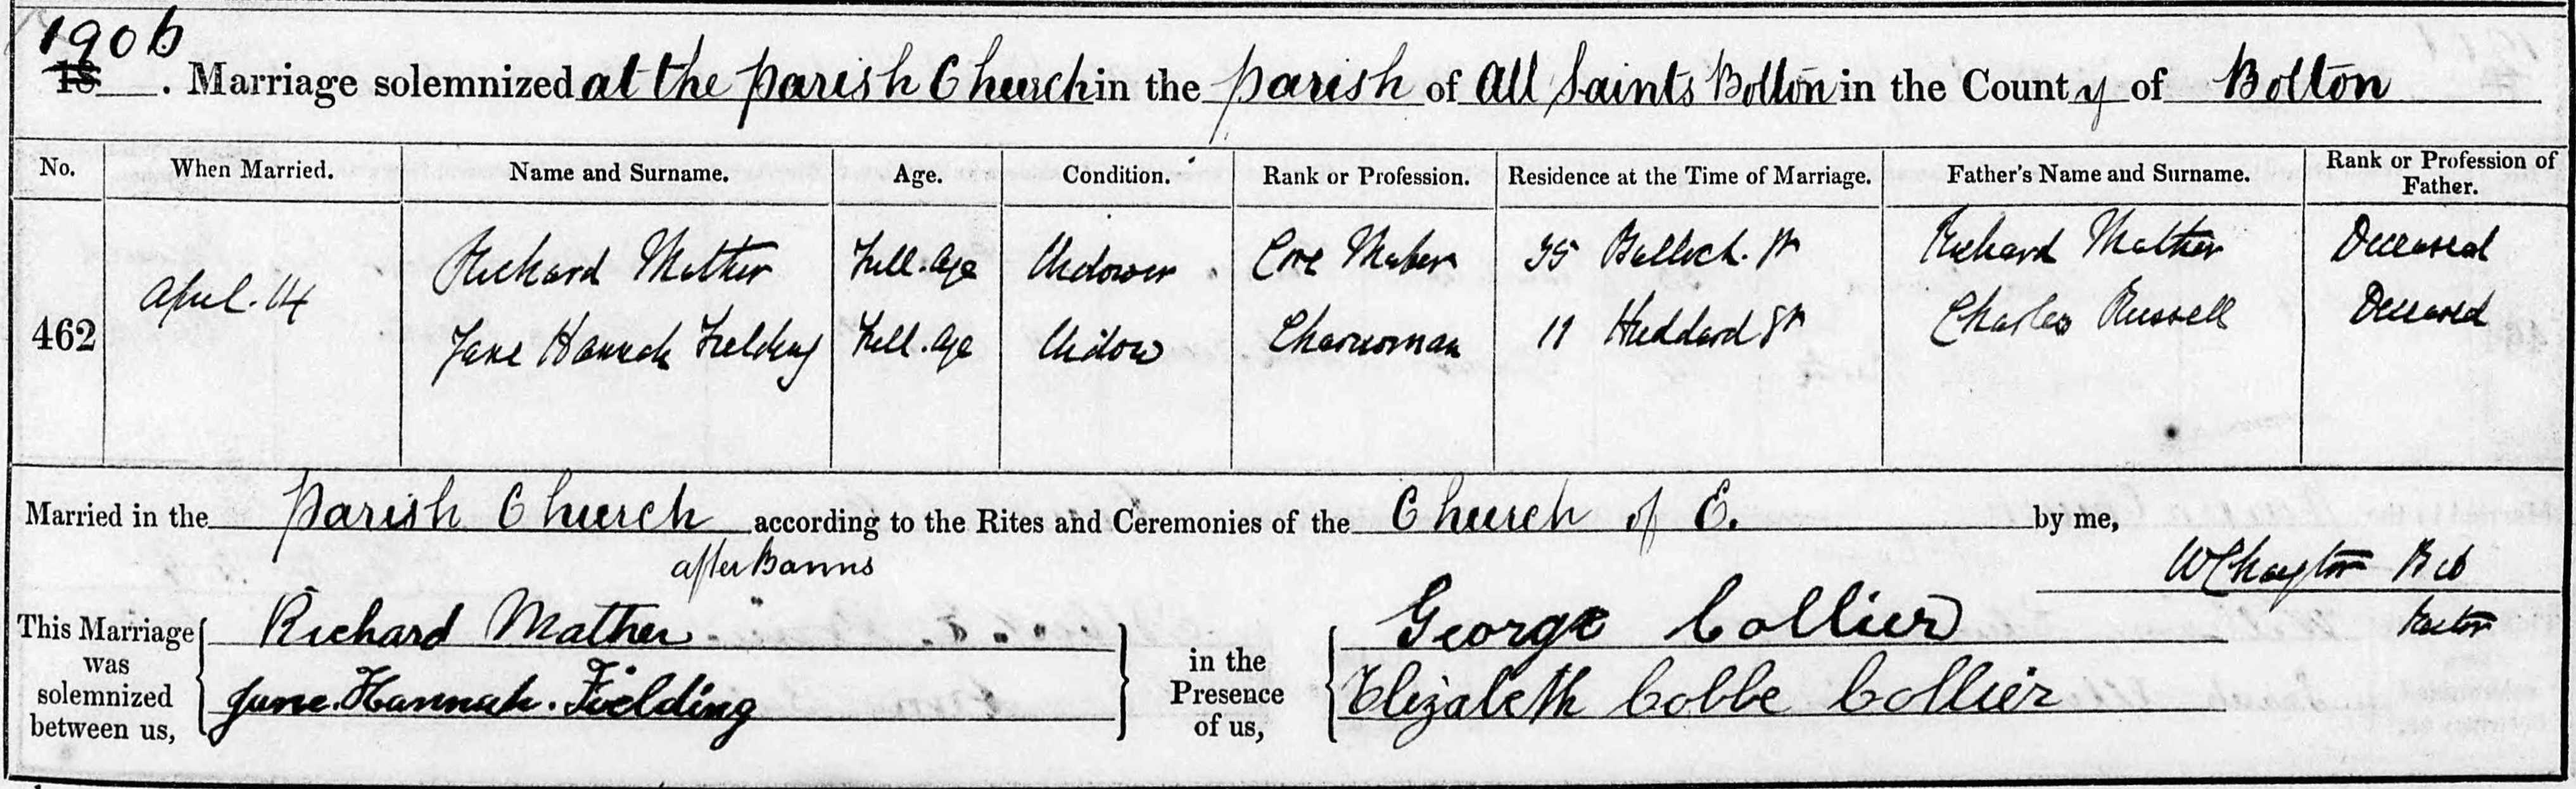 1906
18 . Marriage solemnized at the parish Church in the parish of All Saints Bolton in the County of Bolton
No. When Married. Name and Surname. Age. Condition. Rank or Profession. Residence at the Time of Marriage. Father's Name and Surname. Rank or Profession of Father.
Richard Mather Full.Age Widower Core Maker 35 St Richard Mather Deceased
462 April.14
Jane Hannah Fielding Full.Age Widow Charwoman 11 Huddard St Charles Russell Deceased
Married in the parish Church according to the Rites and Ceremonies of the Church of E. by me,
after Banns
Rector
This Marriage was solemnized between us,
Richard Mather
Jane.Hannah.Fielding
in the Presence of us,
George Collier
Elizabeth Cobbe Collier